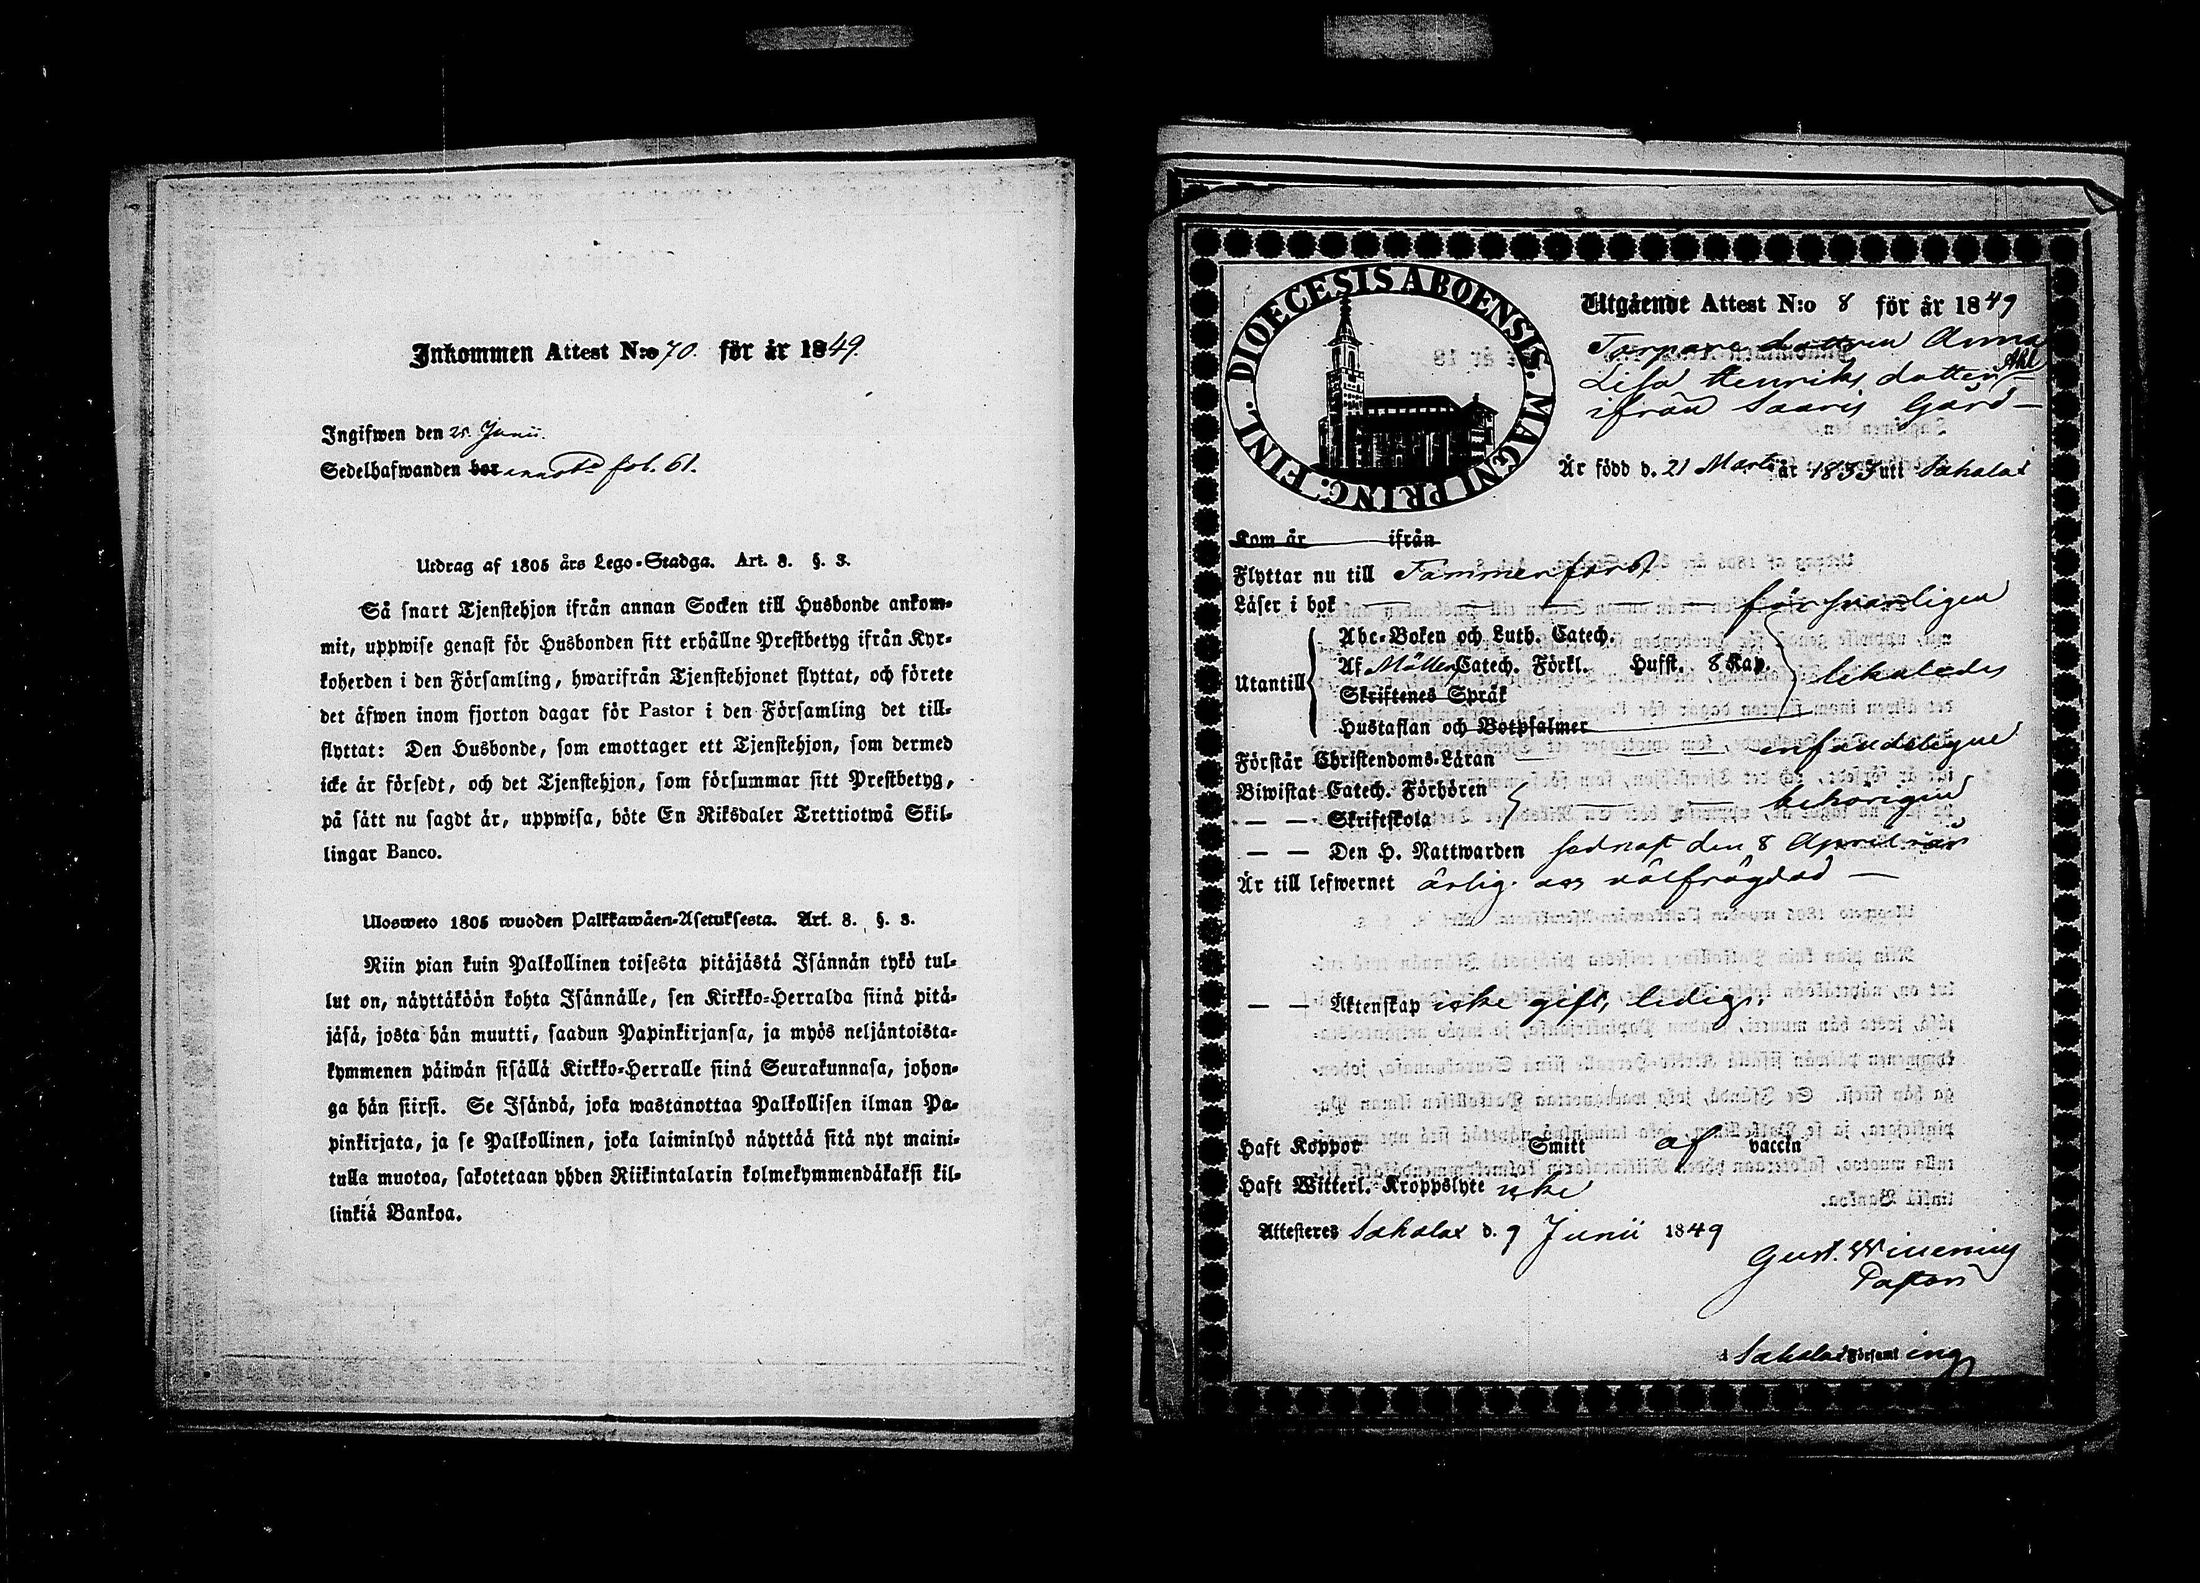 Inkommen Attest N:o 70. för år 1849.
Ingifwen den 25. Junii.
Sedelhafwanden bor fol. 61.
Utdrag af 1805 års Lego-Stadga. Art. 8. §. 3.
Så snart Tjenstehjon ifrån annan Socken till Husbonde ankom-
mit, uppwise genast för Husbonden sitt erhållne Prestbetyg ifrån Kyr-
koherden i den Församling, hwarifrån Tjenstehjonet flyttat, och förete
det äfwen inom fjorton dagar för Pastor i den Församling det till-
flyttat: Den Husbonde, som emottager ett Tjenstehjon, som dermed
icke är försedt, och det Tjenstehjon, som försummar sitt Prestbetyg,
på sätt nu sagdt är, uppwisa, böte En Riksdaler Trettiotwå Skil-
lingar Banco.
Ulosweto 1805 wuoden Palkkawäen-Asetuksesta. Art. 8. §. 3.
Niin pian kuin Palkollinen toisesta pitäjästä Isännän tykö tul-
lut on, näyttäköön kohta Isännälle, sen Kirkko-Herralda siinä pitä-
jäsä, josta hän muutti, saadun Papinkirjansa, ja myös neljäntoista-
kymmenen päiwän sisällä Kirkko-Herralle siinä Seurakunnasa, johon-
ga hän siirsi. Se Isändä, joka wastanottaa Palkollisen ilman Pa-
pinkirjata, ja se Palkollinen, joka laiminlyö näyttää sitä nyt maini-
tulla muotoa, sakotetaan yhden Riikintalarin kolmekymmendäkaksi kil-
linkiä Bankoa.
DIOECESIS ABOENSIS. MAGNI PRINC. FINL.
Utgående Attest N:o 8 för år 1849
Torpare dottren Anna
Lisa Henriks dotter Ahl
ifrån Saaris Gård
Är född d. 21 Martii år 1833 uti Sahalax
Kom år ifrån
Flyttar nu till Tammerfors
Läser i bok — — — — försvarligen
Abc-Boken och Luth. Catech.
Utantill Af Möllers Catech. Förkl. Husst. 8 Kap. likaledes
Skriftenes Språk
Hustaflan och Botpsalmer
Förstår Christendoms-Läran — — enfaldeligen
Biwistat Catech. Förhören — — behörigen
— — Skriftskola
— — Den H. Nattwarden sednast den 8 April
Är till lefwernet ärlig och välfrägdad —
— — Äktenskap icke gift, ledig.
Haft Koppor Smitt af vaccin
Haft Witterl. Kroppslyte icke
Attesteres Sahalax d. 9 Junii 1849
Gust. Winning
Pastor
i Sahalax Församling